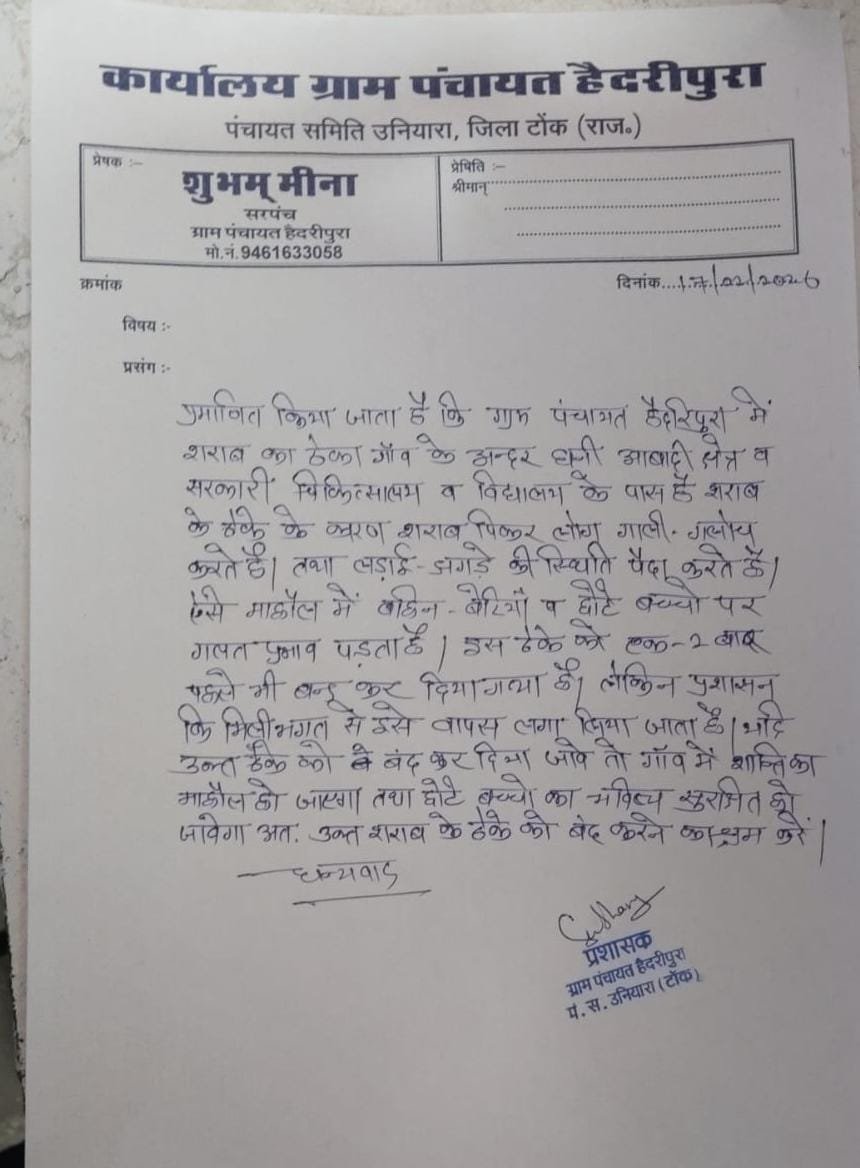 कार्यालय ग्राम पंचायत हैदरीपुरा
पंचायत समिति उनियारा, जिला टोंक (राज०)
प्रेषक :-
शुभम् मीना
सरपंच
ग्राम पंचायत हैदरीपुरा
मो.नं. 9461633058
प्रेषिति :-
श्रीमान्
क्रमांक
दिनांक....17/02/2026
विषय :-
प्रसंग :-
प्रमाणित किया जाता है कि ग्राम पंचायत हैदरिपुरा में
शराब का ठेका गाँव के अन्दर घनी आबादी क्षेत्र व
सरकारी चिकित्सालय व विद्यालय के पास है शराब
के ठेके के कारण शराब पिकर लोग गाली-गलोच
करते है। तथा लड़ाई-झगड़े की स्थिति पैदा करते है।
ऐसे माहौल में बहिन-बेटियाँ व छोटे बच्चो पर
गलत प्रभाव पड़ता है। इस ठेके को एक-2 बार
पहले भी बन्द कर दिया गया है। लेकिन प्रशासन
कि मिलीभगत से इसे वापस लगा लिया जाता है। यदि
उक्त ठेके को बंद कर दिया जावे तो गाँव में शान्ति का
माहौल हो जाएगा तथा छोटे बच्चो का भविष्य सुरक्षित हो
जावेगा अत. उक्त शराब के ठेके को बंद करने का श्रम करें।
धन्यवाद
प्रशासक
ग्राम पंचायत हैदरीपुरा
पं. स. उनियारा (टोंक)